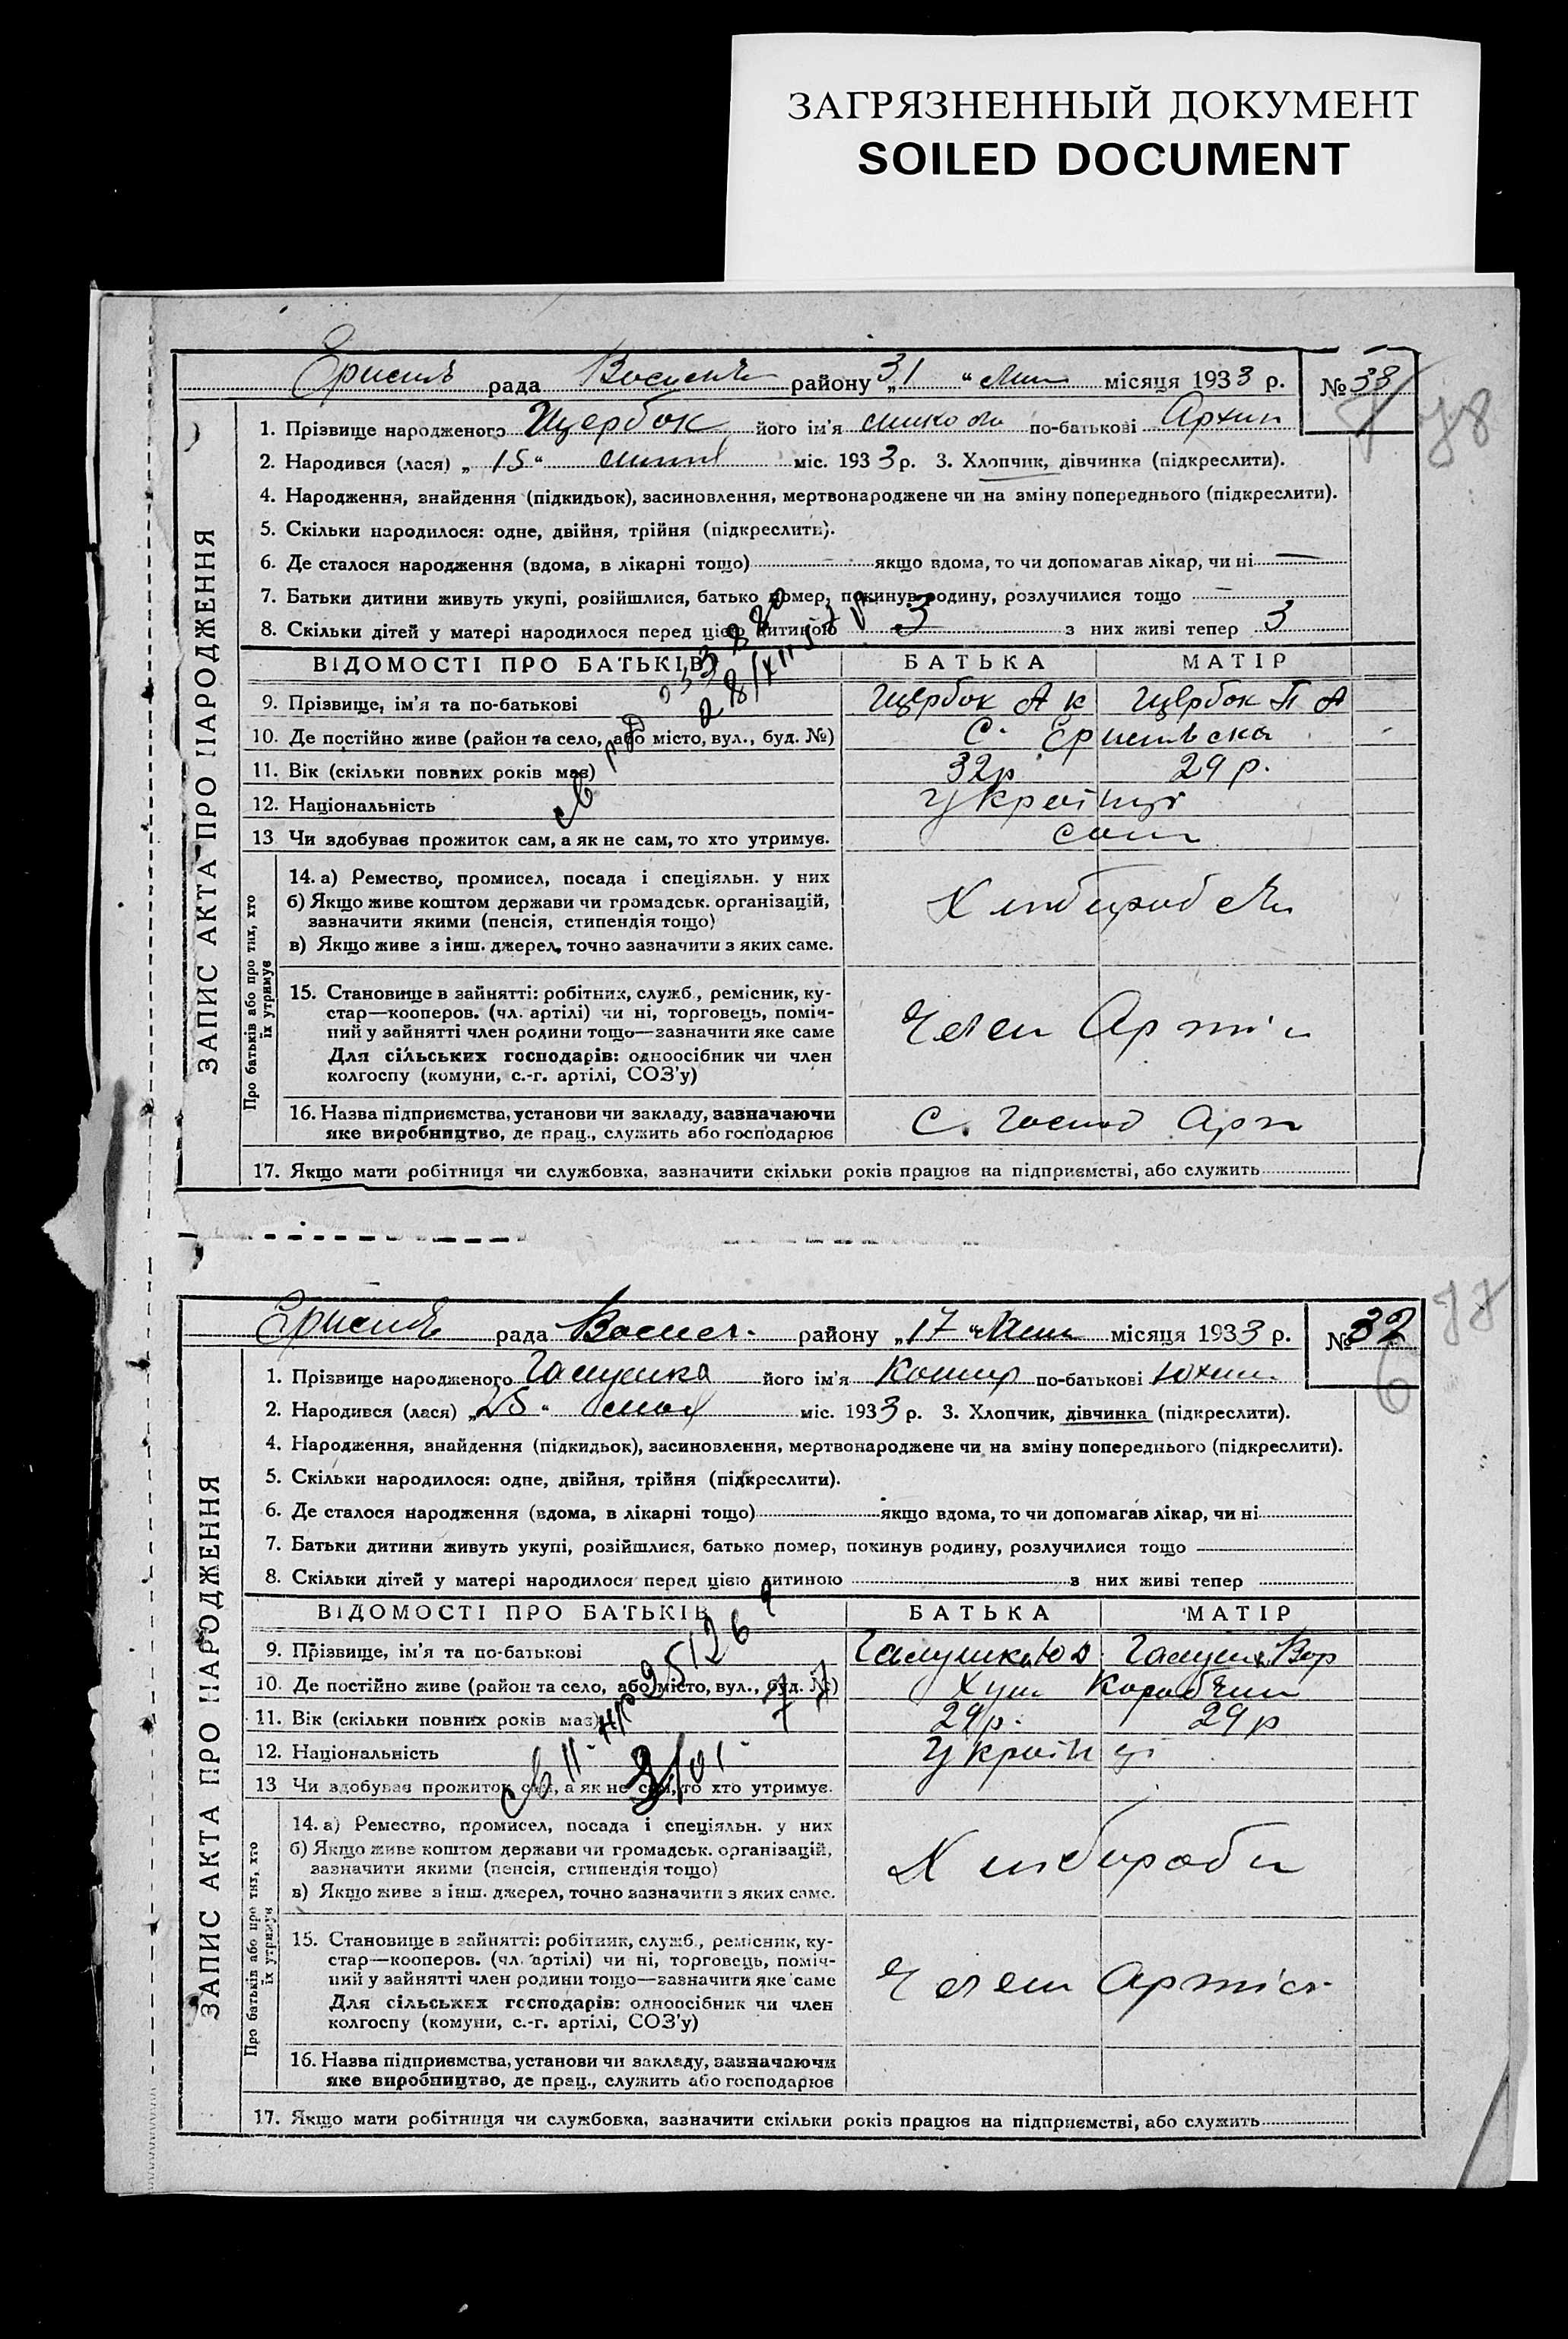 ЗАГРЯЗНЕННЫЙ ДОКУМЕНТ
SOILED DOCUMENT
рада району „31“ місяця 1933 р. № 33
1. Прізвище народженого Щербок його ім'я по-батькові Архип
2. Народився (лася) „15“ міс. 1933 р. 3. Хлопчик, дівчинка (підкреслити).
4. Народження, знайдення (підкидьок), засиновлення, мертвонароджене чи на зміну попереднього (підкреслити).
5. Скільки народилося: одне, двійня, трійня (підкреслити).
6. Де сталося народження (вдома, в лікарні тощо) якщо вдома, то чи допомагав лікар, чи ні
7. Батьки дитини живуть укупі, розійшлися, батько помер, покинув родину, розлучилися тощо
8. Скільки дітей у матері народилося перед цією дитиною 3 з них живі тепер 3
ВІДОМОСТІ ПРО БАТЬКІВ БАТЬКА МАТІР
9. Прізвище, ім'я та по-батькові Щербок А К Щербок П А
10. Де постійно живе (район та село, або місто, вул., буд. №) С.
11. Вік (скільки повних років має) 32р 29 р.
12. Національність Українці
13 Чи здобуває прожиток сам, а як не сам, то хто утримує. сам
14. а) Ремество, промисел, посада і спеціяльн. у них
б) Якщо живе коштом держави чи громадськ. організацій,
зазначити якими (пенсія, стипендія тощо)
в) Якщо живе з інш. джерел, точно зазначити з яких саме.
15. Становище в зайнятті: робітник, служб., ремісник, ку-
стар—кооперов. (чл. артілі) чи ні, торговець, поміч-
ний у зайнятті член родини тощо—зазначити яке саме
Для сільських господарів: одноосібник чи член
колгоспу (комуни, с.-г. артілі, СОЗ'у)
Член Артіл
16. Назва підприємства, установи чи закладу, зазначаючи
яке виробництво, де прац., служить або господарює
С. Господ Арт
17. Якщо мати робітниця чи службовка, зазначити скільки років працює на підприємстві, або служить
ЗАПИС АКТА ПРО НАРОДЖЕННЯ
Про батьків або про тих, хто
їх утримує
78
рада району „17“ місяця 1933 р. № 32
1. Прізвище народженого Галушка його ім'я по-батькові Юхим.
2. Народився (лася) „25“ мая міс. 1933 р. 3. Хлопчик, дівчинка (підкреслити).
4. Народження, знайдення (підкидьок), засиновлення, мертвонароджене чи на зміну попереднього (підкреслити).
5. Скільки народилося: одне, двійня, трійня (підкреслити).
6. Де сталося народження (вдома, в лікарні тощо) якщо вдома, то чи допомагав лікар, чи ні
7. Батьки дитини живуть укупі, розійшлися, батько помер, покинув родину, розлучилися тощо
8. Скільки дітей у матері народилося перед цією дитиною з них живі тепер
ВІДОМОСТІ ПРО БАТЬКІВ БАТЬКА МАТІР
9. Прізвище, ім'я та по-батькові Галушка Ю
10. Де постійно живе (район та село, або місто, вул., буд. №)
11. Вік (скільки повних років має) 29р. 29р
12. Національність Українці
13 Чи здобуває прожиток сам, а як не сам, то хто утримує.
14. а) Ремество, промисел, посада і спеціяльн. у них
б) Якщо живе коштом держави чи громадськ. організацій,
зазначити якими (пенсія, стипендія тощо)
в) Якщо живе з інш. джерел, точно зазначити з яких саме.
15. Становище в зайнятті: робітник, служб., ремісник, ку-
стар—кооперов. (чл. артілі) чи ні, торговець, поміч-
ний у зайнятті член родини тощо—зазначити яке саме
Для сільських господарів: одноосібник чи член
колгоспу (комуни, с.-г. артілі, СОЗ'у)
Член Артіл
16. Назва підприємства, установи чи закладу, зазначаючи
яке виробництво, де прац., служить або господарює
17. Якщо мати робітниця чи службовка, зазначити скільки років працює на підприємстві, або служить
ЗАПИС АКТА ПРО НАРОДЖЕННЯ
Про батьків або про тих, хто
їх утримує
77
6